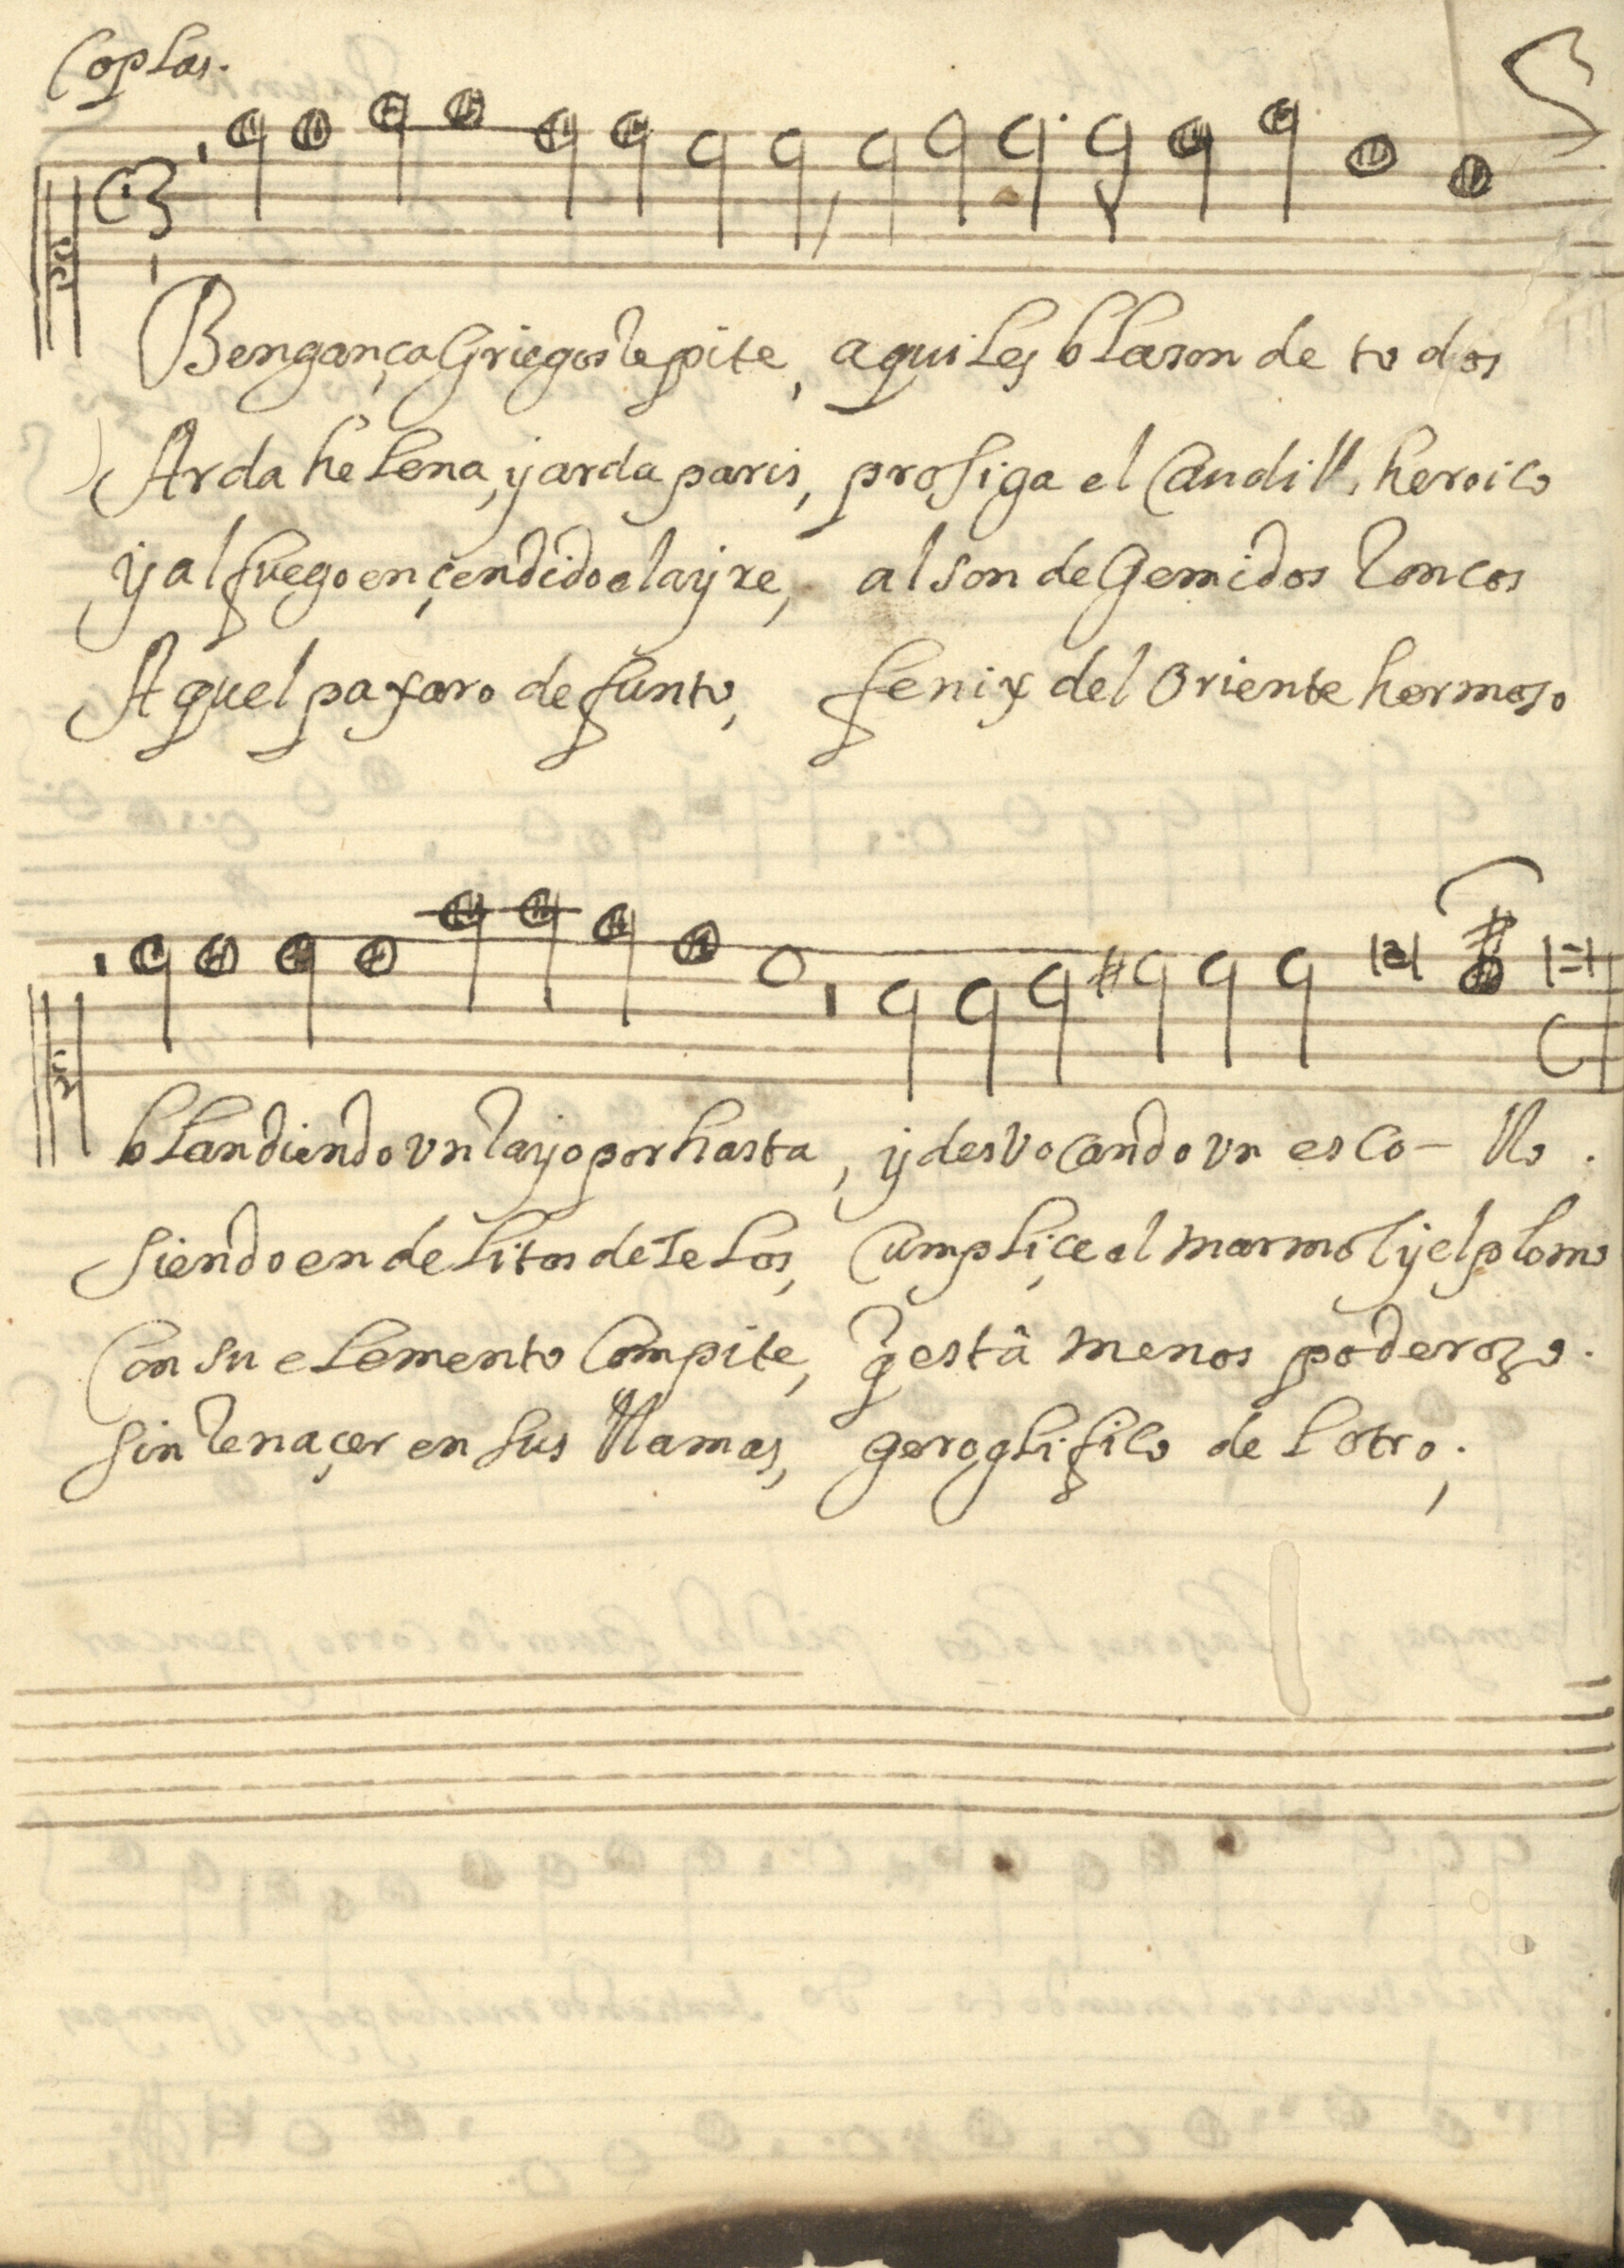 Coplas.
Bengança Griegos repite, aquiles blason de todos
Arda helena, y arda paris, prosiga el Caudillo heroico
y al fuego ençendido el ayre, al son de Gemidos roncos
Aquel paxaro defunto, fenix del Oriente hermoso
blandiendo vn rayo por hasta, y desvocando vn esco- llo.
siendo en delitos de Ielos, Cumpliçe el marmol y el plomo
Con su elemento Compite, q̃ estâ menos poderozo.
sin renaçer en sus llamas, geroglifico del otro.